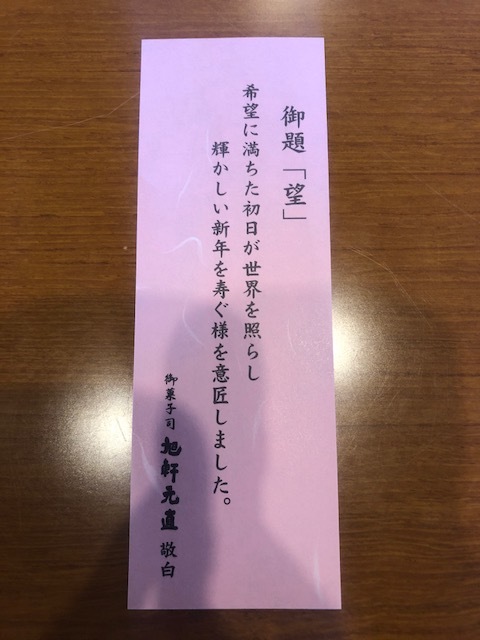 御題「望」
希望に満ちた初日が世界を照らし
輝かしい新年を寿ぐ様を意匠しました。
御菓子司 旭軒元直 敬白